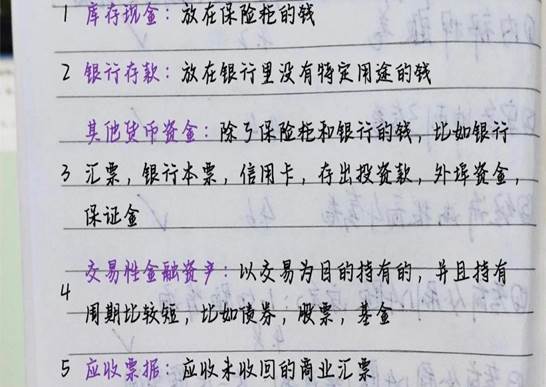 1 库存现金：放在保险柜的钱
2 银行存款：放在银行里没有特定用途的钱
其他货币资金：除了保险柜和银行的钱，比如银行
3 汇票，银行本票，信用卡，存出投资款，外埠资金，
保证金
交易性金融资产：以交易为目的持有的，并且持有
4
周期比较短，比如债券，股票，基金
5 应收票据：应收未收回的商业汇票